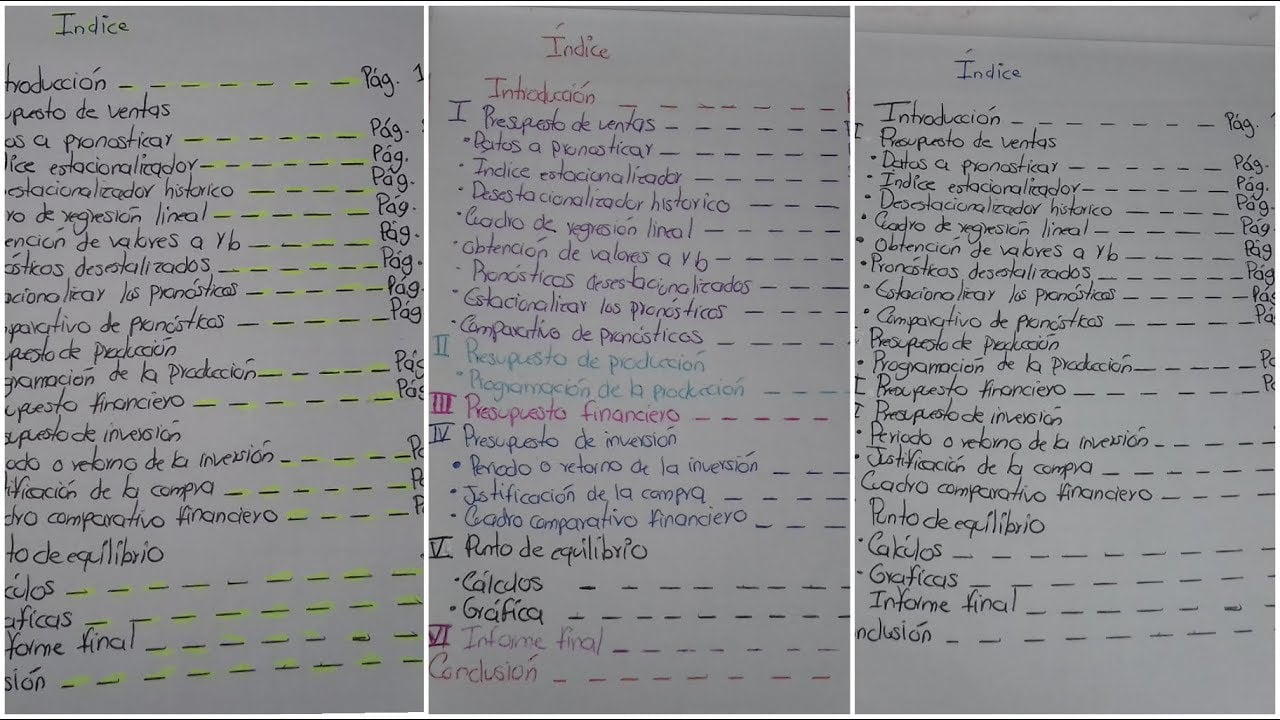 Indice
troducción _ _ _ _ _ _ _ _ Pág. 1
puesto de ventas
os a pronosticar _ _ _ _ _ _ Pág.
dice estacionalizador _ _ _ _ _ Pág.
estacionalizador historico _ _ _ _ Pág.
ro de regresión lineal _ _ _ _ _ Pág.
ención de valores a y b _ _ _ _ Pág.
ósticos desestalizados _ _ _ _ _ Pág.
acionalizar los pronósticos _ _ _ _ Pág.
parativo de pronósticos _ _ _ _ Pág
puesto de producción
gramación de la producción _ _ _ _ Pág
upuesto financiero _ _ _ _ _ _ Pág
supuesto de inversión
odo o retorno de la inversión _ _ _ _
tificación de la compra _ _ _ _ _
dro comparativo financiero _ _ _ _
to de equilibrio
culos _ _ _ _ _ _ _ _
aficas _ _ _ _ _ _ _ _
forme final _ _ _ _ _ _ _
sión _ _ _ _ _ _ _ _
Índice
Introducción _ _ _ _ _ _
I Presupuesto de ventas _ _ _ _ _
• Datos a pronosticar _ _ _ _ _
• Indice estacionalizador _ _ _ _
• Desestacionalizador historico _ _ _
• Cuadro de regresión lineal _ _ _ _
• obtención de valores a y b _ _ _ _
• Pronósticos desestacionalizados _ _ _
• Estacionalizar los pronósticos _ _ _
• Comparativo de pronósticos _ _ _ _
II Presupuesto de producción
• Programación de la producción _ _ _
III Presupuesto financiero _ _ _ _ _
IV Presupuesto de inversión
• Periodo o retorno de la inversión _ _ _
• Justificación de la compra _ _ _ _
• Cuadro comparativo financiero _ _ _
V Punto de equilibrio
• Cálculos _ _ _ _ _ _
• Gráfica _ _ _ _ _ _
VI Informe final _ _ _ _ _ _
Conclusión _ _ _ _ _ _ _
Índice
Introducción _ _ _ _ _ _ _ Pág.
Presupuesto de ventas
• Datos a pronosticar _ _ _ _ _ _ Pág.
• Indice estacionalizador _ _ _ _ _ Pág.
• Desestacionalizador historico _ _ _ _ Pág.
• Cuadro de regresión lineal _ _ _ _ _ Pág
• Obtención de valores a y b _ _ _ _ Pág.
• Pronósticos desestalizados _ _ _ _ _ Pág
• Estacionalizar los pronósticos _ _ _ _ Pág
• Comparativo de pronósticos _ _ _ _ Pá
Presupuesto de producción
• Programación de la Producción _ _ _ _
I Presupuesto financiero _ _ _ _ _ _
I Presupuesto de inversión
• Periodo o retorno de la inversión _ _ _ _
• Justificación de la compra _ _ _ _ _
Cuadro comparativo financiero _ _ _ _
Punto de equilibrio
• Calcúlos _ _ _ _ _ _ _
• Graficas _ _ _ _ _ _ _
Informe final _ _ _ _ _ _
nclusión _ _ _ _ _ _ _ _